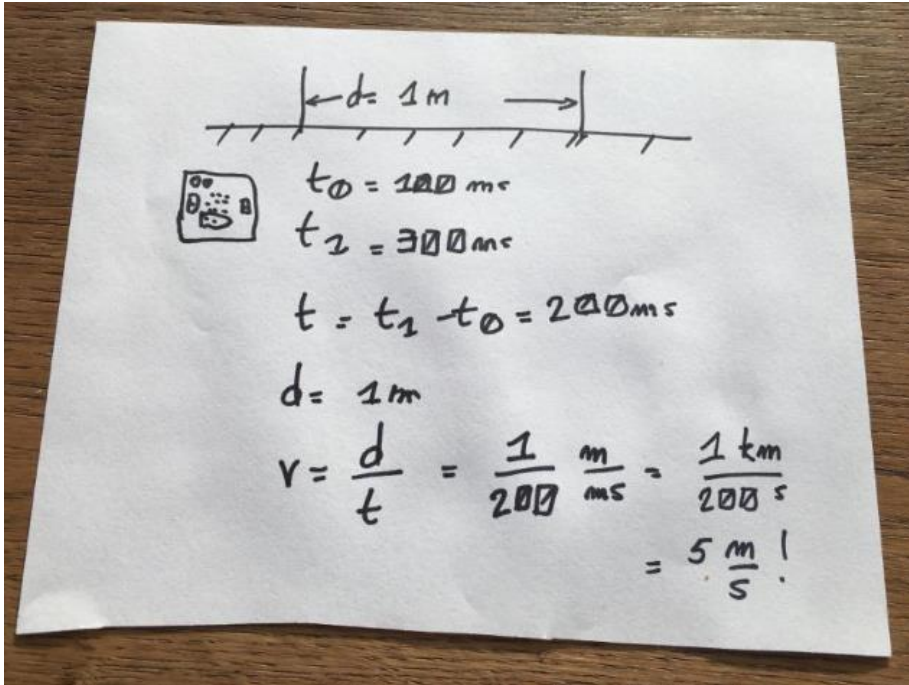 d= 1m
t0 = 100 ms
t1 = 300ms
t = t1 - t0 = 200ms
d= 1m
v = d/t = 1/200 m/ms = 1 km/200 s
= 5 m/s !